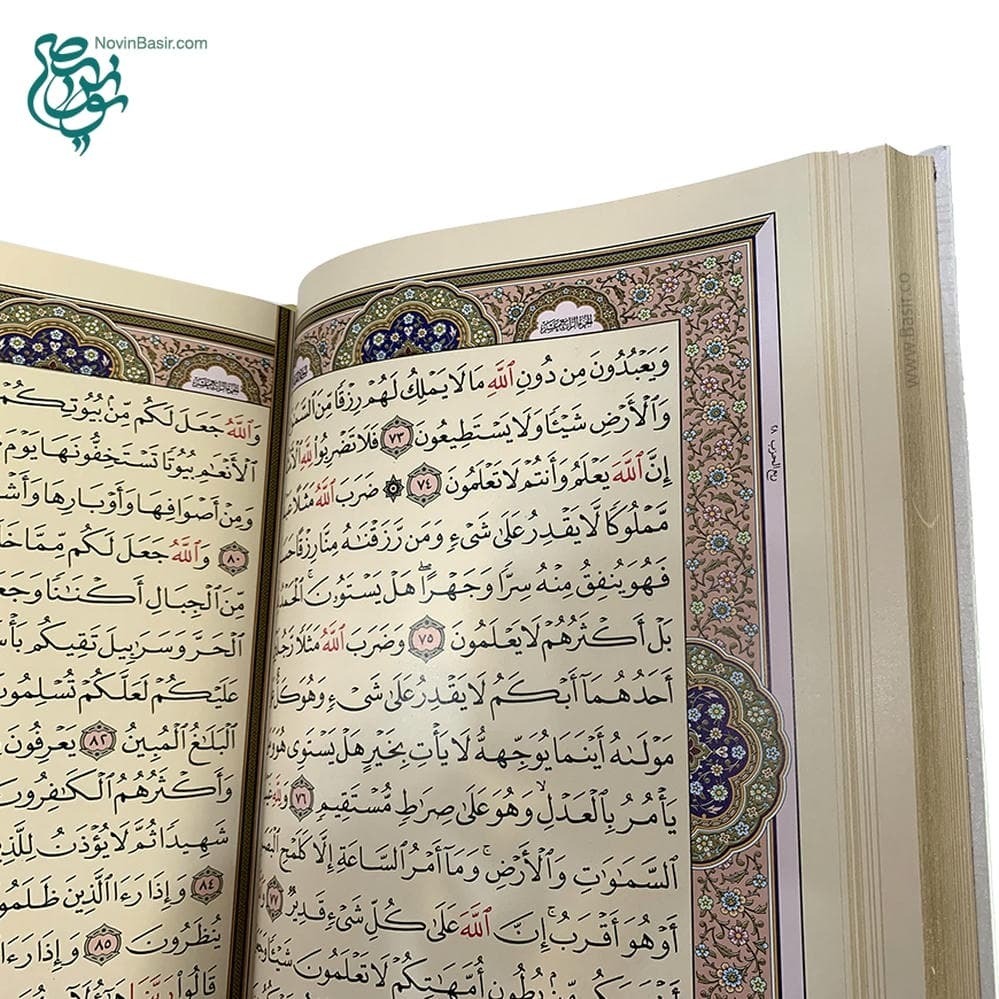 NovinBasir.com
www.Basir.co
ربع الحزب ٢٨
وَيَعۡبُدُونَ مِن دُونِ ٱللَّهِ مَا لَا يَمۡلِكُ لَهُمۡ رِزۡقٗا مِّنَ
وَٱلۡأَرۡضِ شَيۡـٔٗا وَلَا يَسۡتَطِيعُونَ ٧٣ فَلَا تَضۡرِبُواْ لِلَّهِ
إِنَّ ٱللَّهَ يَعۡلَمُ وَأَنتُمۡ لَا تَعۡلَمُونَ ٧٤ ۞ ضَرَبَ ٱللَّهُ مَثَلًا
مَّمۡلُوكٗا لَّا يَقۡدِرُ عَلَىٰ شَيۡءٖ وَمَن رَّزَقۡنَٰهُ مِنَّا رِزۡقًا
فَهُوَ يُنفِقُ مِنۡهُ سِرّٗا وَجَهۡرًاۖ هَلۡ يَسۡتَوُۥنَۚ
بَلۡ أَكۡثَرُهُمۡ لَا يَعۡلَمُونَ ٧٥ وَضَرَبَ ٱللَّهُ مَثَلٗا
أَحَدُهُمَآ أَبۡكَمُ لَا يَقۡدِرُ عَلَىٰ شَيۡءٖ وَهُوَ
مَوۡلَىٰهُ أَيۡنَمَا يُوَجِّههُّ لَا يَأۡتِ بِخَيۡرٍ هَلۡ يَسۡتَوِي هُوَ
يَأۡمُرُ بِٱلۡعَدۡلِ وَهُوَ عَلَىٰ صِرَٰطٖ مُّسۡتَقِيمٖ ٧٦
ٱلسَّمَٰوَٰتِ وَٱلۡأَرۡضِۚ وَمَآ أَمۡرُ ٱلسَّاعَةِ إِلَّا كَلَمۡحِ
أَوۡ هُوَ أَقۡرَبُۚ إِنَّ ٱللَّهَ عَلَىٰ كُلِّ شَيۡءٖ قَدِيرٞ ٧٧
مِّنۢ بُطُونِ أُمَّهَٰتِكُمۡ لَا تَعۡلَمُونَ شَيۡـٔٗا
وَٱللَّهُ جَعَلَ لَكُم مِّنۢ بُيُوتِكُمۡ
ٱلۡأَنۡعَٰمِ بُيُوتٗا تَسۡتَخِفُّونَهَا يَوۡمَ
وَمِنۡ أَصۡوَافِهَا وَأَوۡبَارِهَا
٨٠ وَٱللَّهُ جَعَلَ لَكُم مِّمَّا
مِّنَ ٱلۡجِبَالِ أَكۡنَٰنٗا
ٱلۡحَرَّ وَسَرَٰبِيلَ تَقِيكُم
عَلَيۡكُمۡ لَعَلَّكُمۡ تُسۡلِمُونَ
ٱلۡبَلَٰغُ ٱلۡمُبِينُ ٨٢ يَعۡرِفُونَ
وَأَكۡثَرُهُمُ ٱلۡكَٰفِرُونَ
شَهِيدٗا ثُمَّ لَا يُؤۡذَنُ
٨٤ وَإِذَا رَءَا ٱلَّذِينَ
يُنظَرُونَ ٨٥ وَإِذَا رَءَا
قَالُواْ رَبَّنَا هَٰٓؤُلَآءِ